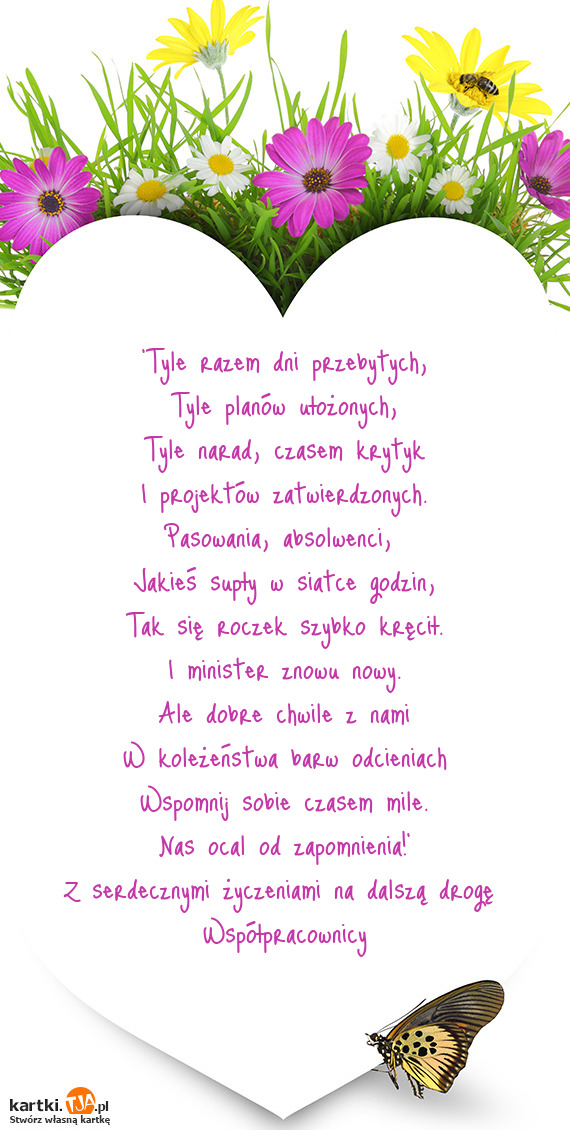 "Tyle razem dni przebytych,
Tyle planów ułożonych,
Tyle narad, czasem krytyk
I projektów zatwierdzonych.
Pasowania, absolwenci,
Jakieś supły w siatce godzin,
Tak się roczek szybko kręcił.
I minister znowu nowy.
Ale dobre chwile z nami
W koleżeństwa barw odcieniach
Wspomnij sobie czasem mile.
Nas ocal od zapomnienia!"
Z serdecznymi życzeniami na dalszą drogę
Współpracownicy
kartki.TJA.pl
Stwórz własną kartkę